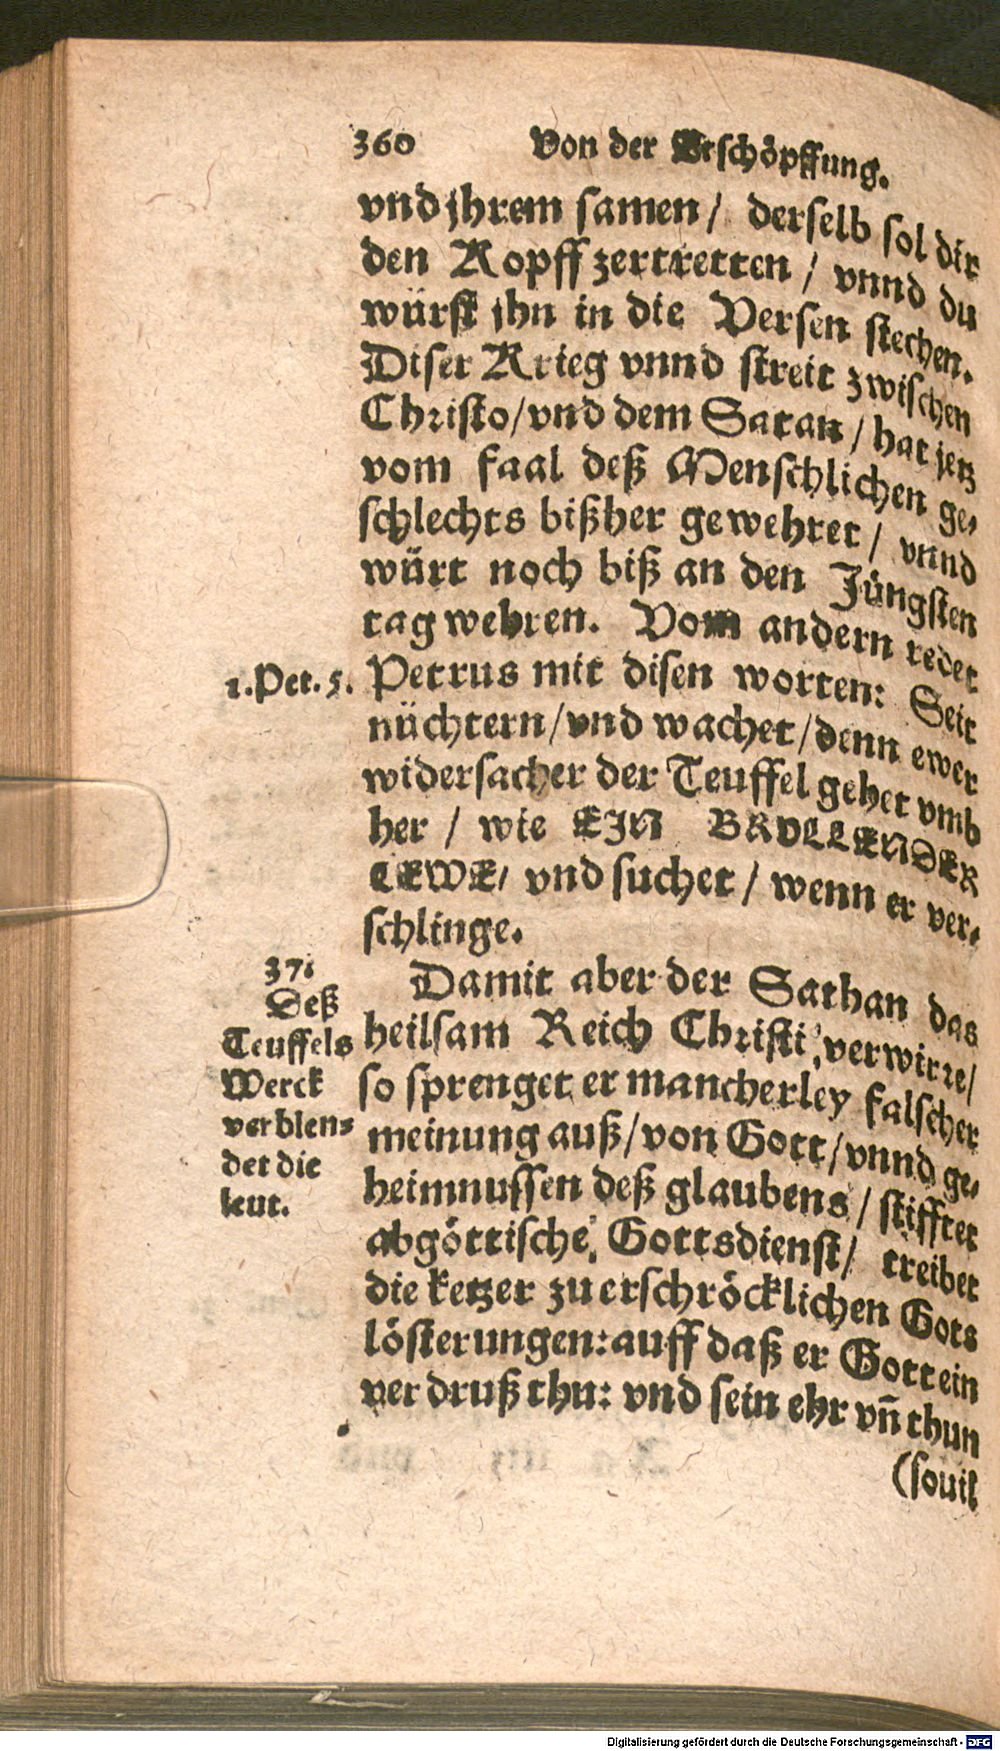 360 Von der Erschöpffung.
vnd jhrem samen / derselb sol dir
den Kopff zertretten / vnnd du
würst jhn in die Versen stechen.
Diser Krieg vnnd streit zwischen
Christo / vnd dem Satan / hat jetz
vom faal deß Menschlichen ge-
schlechts bißher gewehret / vnnd
würt noch biß an den Jüngsten
tag wehren. Vom andern redet
1. Pet. 5.
Petrus mit disen worten: Seit
nüchtern / vnd wachet / denn ewer
widersacher der Teuffel gehet vmb
her / wie EIN BRVLLENDER
LEWE / vnd suchet / wenn er ver-
schlinge.
37.
Deß
Teuffels
Werck
verblen-
det die
leut.
Damit aber der Sathan das
heilsam Reich Christi verwirre /
so sprenget er mancherley falscher
meinung auß / von Gott / vnnd ge-
heimnussen deß glaubens / stifftet
abgöttische Gottsdienst / treibet
die ketzer zu erschröcklichen Gots
lösterungen: auff daß er Gott ein
verdruß thu: vnd sein ehr vn̄ thun
(souil
Digitalisierung gefördert durch die Deutsche Forschungsgemeinschaft - DFG